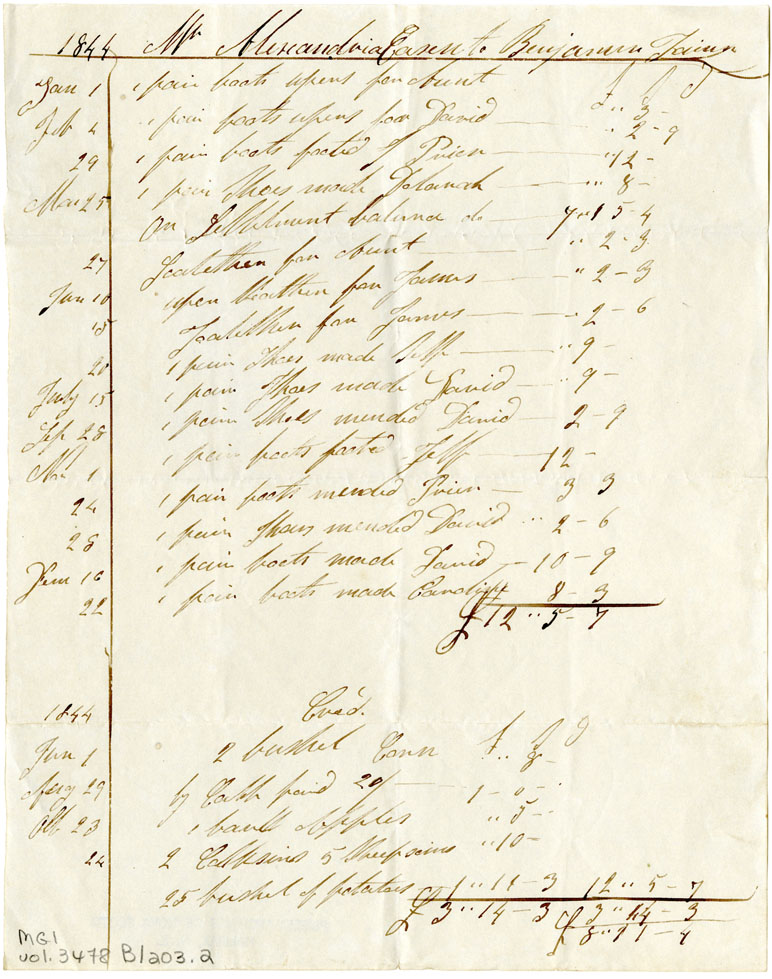 1844 Mr Alexandria Easen to Benjamin
£ S D
Jan 1 1 pair boots upens for Aunt " 3 -
Feb 4 1 pair boots upens for David " 2 - 9
29 1 pair boots footed Prien " 12 -
Mar 25 1 pair Shoes made Delanah " 8 -
On Settlement balance do 7 " 15 - 4
27 for Aunt " 2 - 3
Jun 10 upen leathen for James " 2 - 3
15 for James - 2 - 6
20 1 pair Shoes made Jeff " 9 -
July 15 1 pair Shoes made David " 9 -
Sep 28 1 pair Shoes mended David - 2 - 9
Nov 1 1 pair boots footed Jeff - 12 -
24 1 pair boots mended Prien - 3 3
28 1 pair Shoes mended David " 2 - 6
Dem 16 1 pair boots made David - 10 - 9
22 1 pair boots made 8 - 3
£ 12 " 5 - 7
1844 Cred.
£ S D
Jun 1 2 bushel Corn " 8 -
29 by Cash paid 20/ 1 - 0 -
Ot 23 1 Apples " 5 -
24 2 Calfscins 5 Sheepscins " 10 -
25 bushel of potatoes 1 " 11 - 3 12 " 5 - 7
£ 3 " 14 - 3 £ 3 " 14 - 3
£ 8 " 11 - 4
MG1
vol. 3478 B/203.2